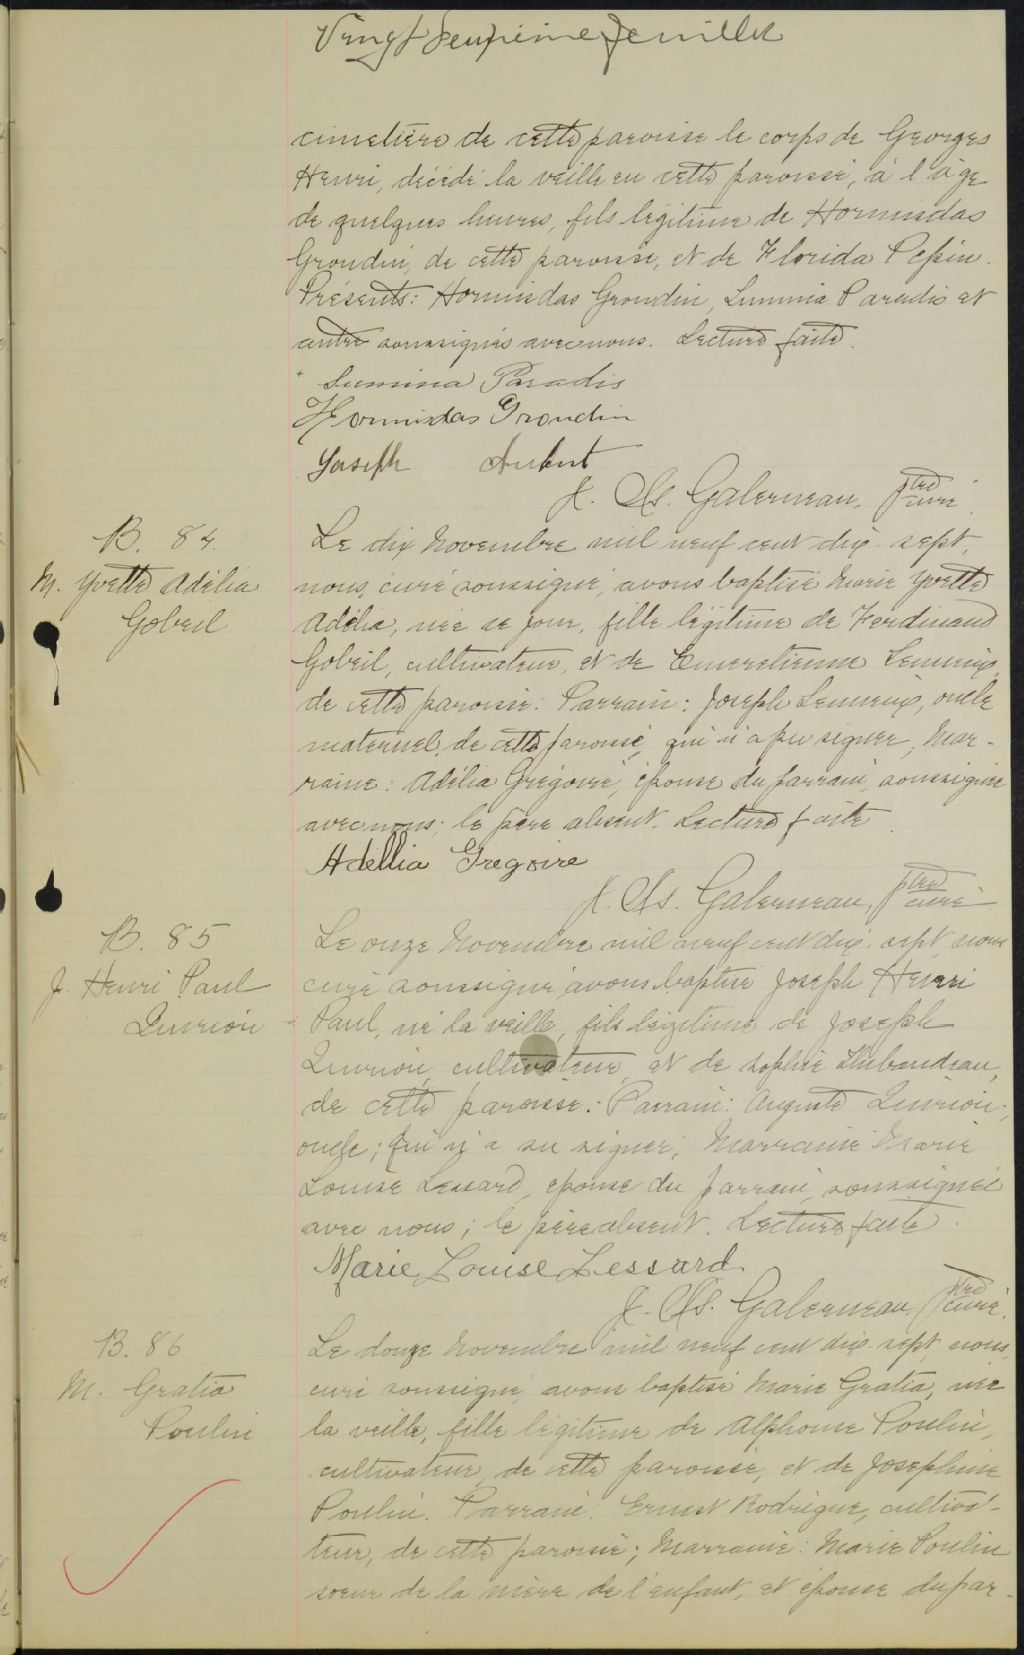 Vingt deuxième feuillet
cimetière de cette paroisse le corps de Georges
Henri, décédé la veille en cette paroisse, à l'âge
de quelques heures, fils légitime de Hormisdas
Grondin, de cette paroisse, et de Florida Pépin.
Présents: Hormisdas Grondin, Lumina Paradis et
autre soussignés avec nous. Lecture faite.
Lumina Paradis
Hormisdas Grondin
Joseph Aubut
J. Ls. Galerneau, ptre curé.
B. 84.
M. Yvette Adélia
Gobeil
Le dix Novembre mil neuf cent dix-sept,
nous, curé soussigné, avons baptisé Marie Yvette
Adélia, née ce jour, fille légitime de Ferdinand
Gobeil, cultivateur, et de Emerentienne Lemieux,
de cette paroisse. Parrain: Joseph Lemieux, oncle
maternel, de cette paroisse, qui n'a pu signer, Mar-
raine: Adélia Grégoire, épouse du parrain, soussignée
avec nous; le père absent. Lecture faite
Adellia Gregoire
J. Ls. Galerneau, ptre curé
B. 85
J. Henri Paul
Quirion
Le onze Novembre mil neuf cent dix-sept, nous
curé soussigné avons baptisé Joseph Henri
Paul, né la veille, fils légitime de Joseph
Quirion, cultivateur, et de Sophie Thibaudeau,
de cette paroisse. Parrain: Auguste Quirion,
oncle; qui n'a su signer; Marraine Marie
Louise Lessard, épouse du parrain, soussignée
avec nous; le père absent. Lecture faite.
Marie Louise Lessard.
J. Ls. Galerneau, ptre curé.
B. 86
M. Gratia
Poulin
Le douze Novembre mil neuf cent dix-sept, nous,
curé soussigné, avons baptisé Marie Gratia, née
la veille, fille légitime de Alphonse Poulin,
cultivateur, de cette paroisse, et de Josephine
Poulin. Parrain: Ernest Rodrigue, cultiva-
teur, de cette paroisse; Marraine: Marie Poulin
soeur de la mère de l'enfant, et épouse du par-